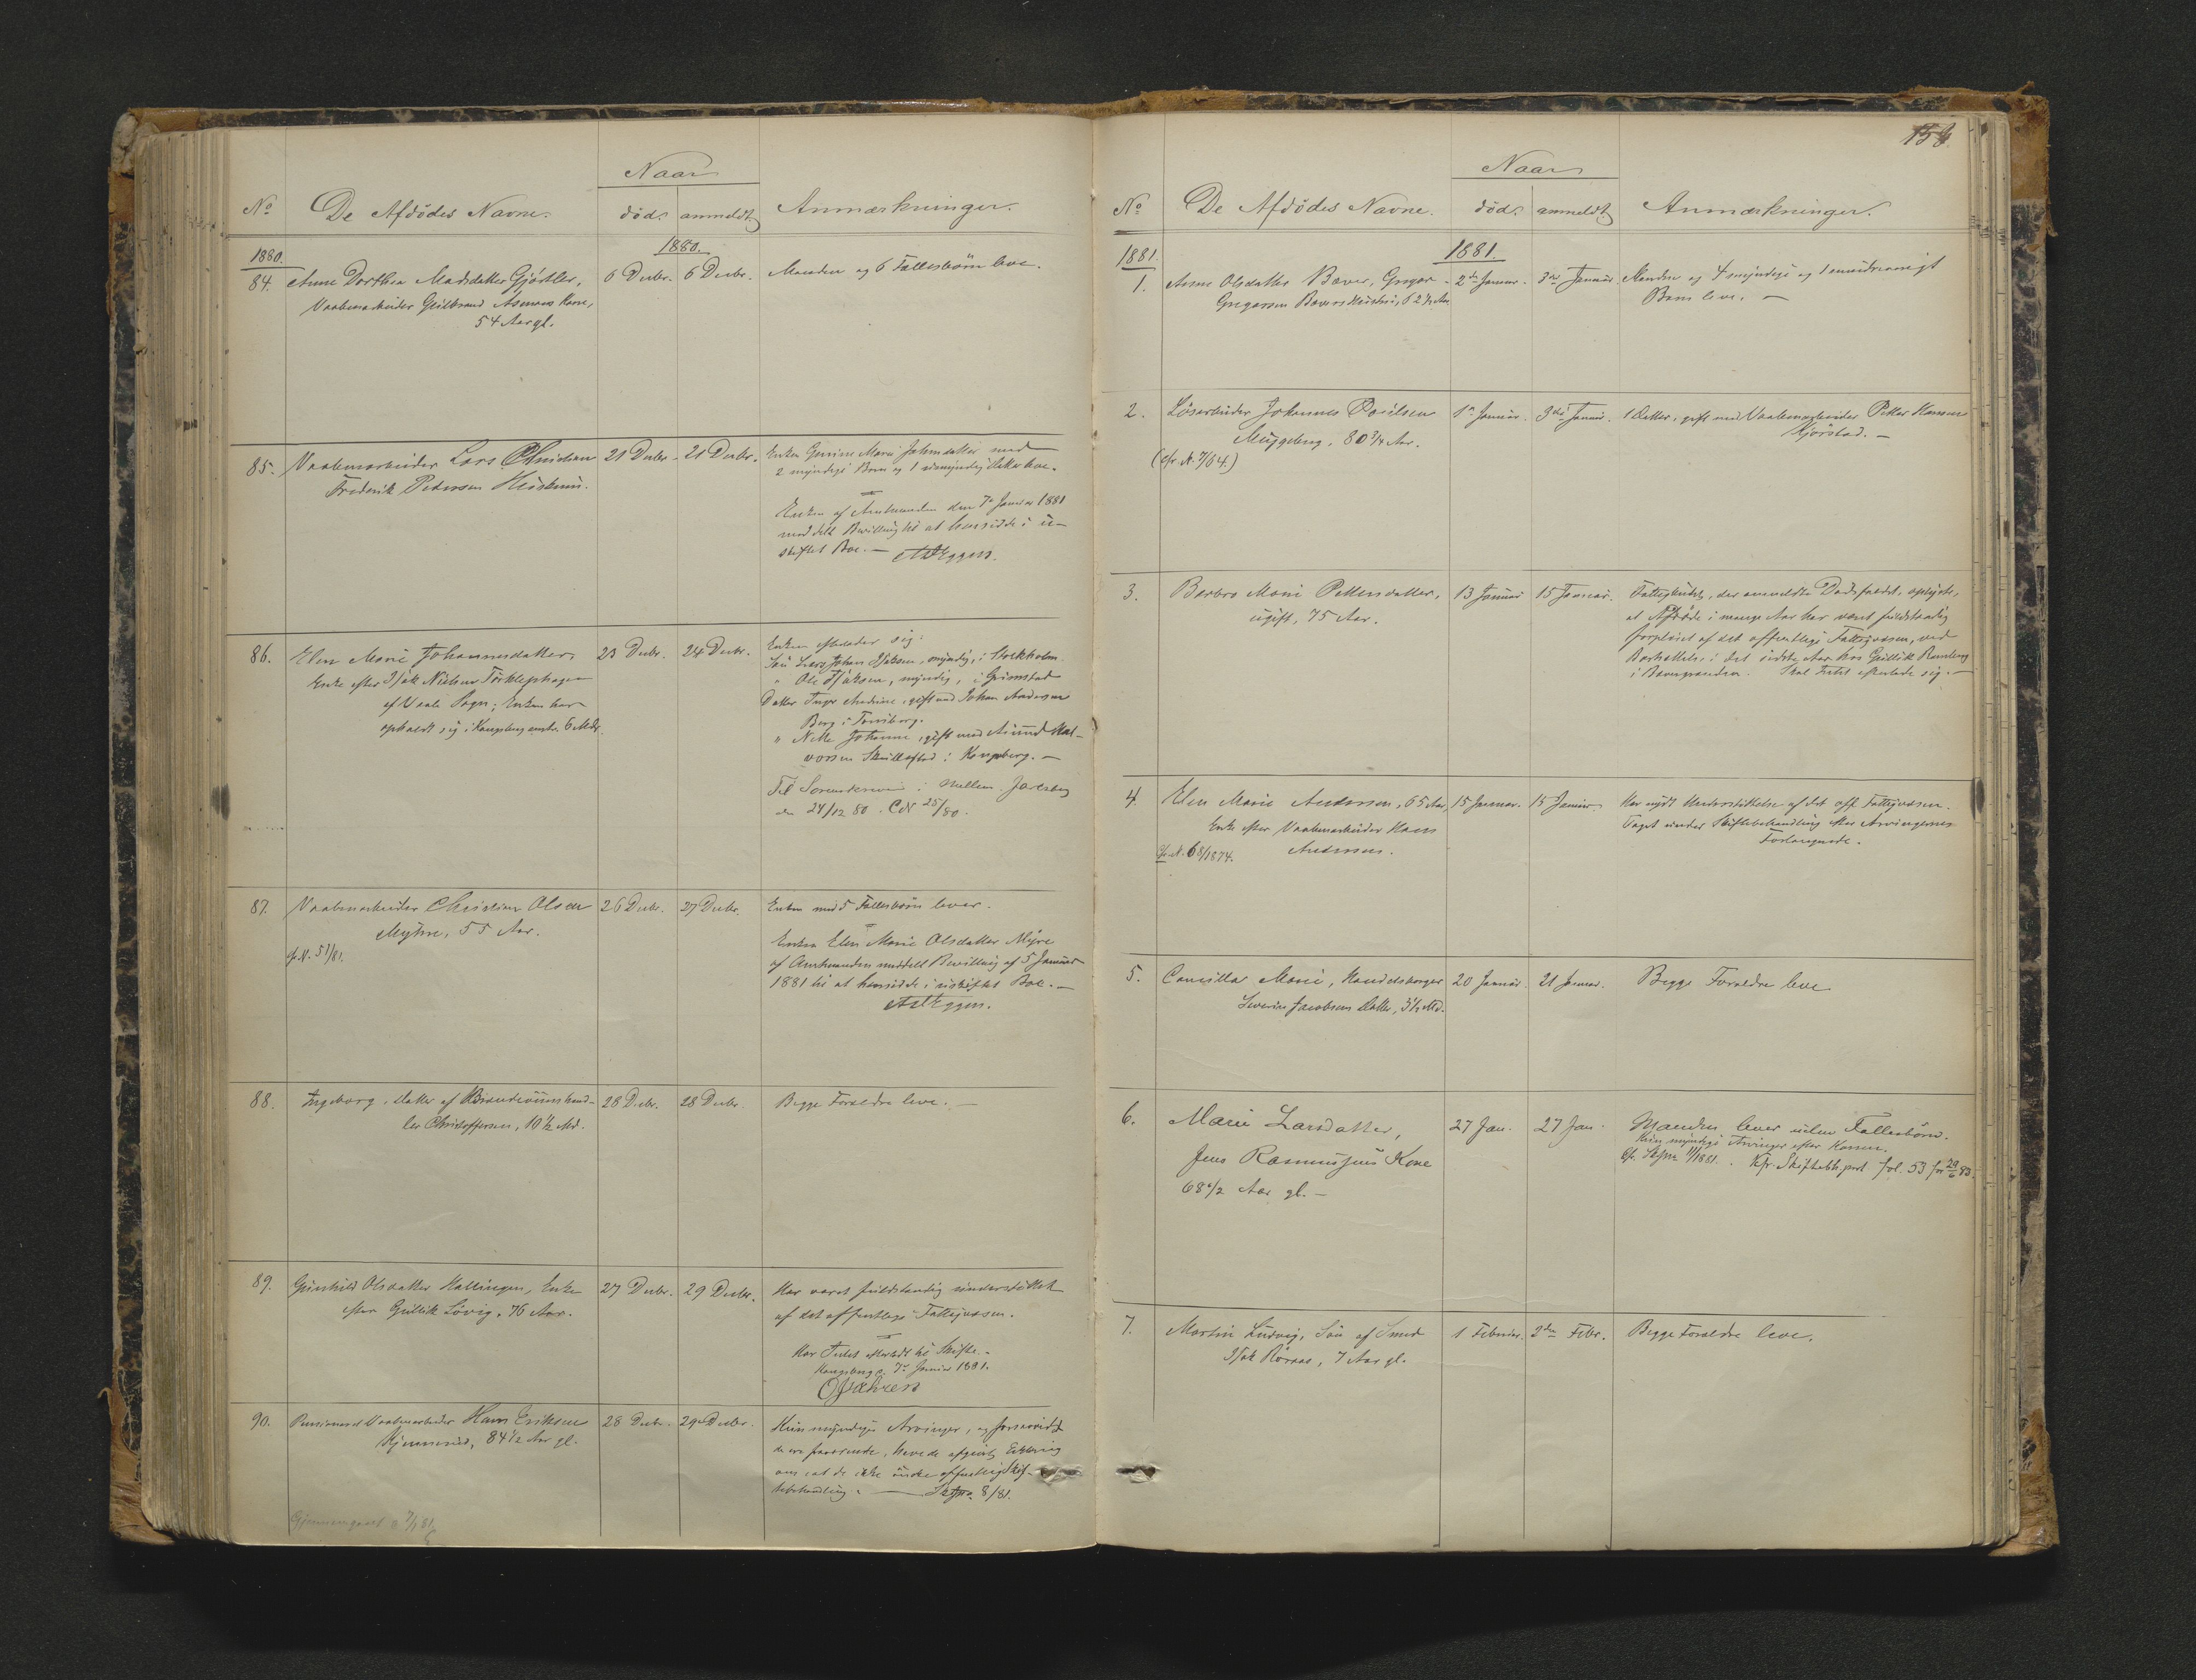 Naar
No De Afdödes Navne. död. anmeldt. Anmærkninger.
1880. 1880.
84. Anne Dorthea Madsdatter Gjötler, 6 Decbr. 6 Decbr. Manden og 6 Fællesbörn leve.
Vaabenarbeider Gulbrand Kone,
54 Aar gl.
85. Vaabenarbeider Lars Christian 21 Decbr. 21 Decbr. Enken Gurine Marie Johnsdatter med
Frederik Petersen 2 myndige Börn og 1 umyndig Datter leve.
Enken af Amtmanden den 7de Januar 1881
meddelt Bevilling til at hensidde i u-
skiftet Boe. —
86. Elen Marie Johannesdatter, 23 Decbr. 24 Decbr. Enken efterlader sig:
Enke efter Isak Nielsen Sön Lars Johan Isaksen, myndig, i Stockholm.
af Vaale Sogn; Enken har " Ole Isaksen, myndig, i Grimstad
opholdt sig i Kongsberg omtr. 6 Mdr. Datter Inger Andrine, gift med Johan Andersen
Berg i Tönsberg.
" Nille Johanne, gift med Amund Hal-
vorsen i Kongsberg. —
Til Sorenskriveren i Mellem Jarlsberg
den 24/12 80. CN 25/80.
87. Vaabenarbeider Christian Olsen 26 Decbr. 27 Decbr. Enken med 5 Fællesbörn lever.
Myhre, 55 Aar.
cfr. N. 51/81. Enken Elen Marie Olsdatter Myre
af Amtmanden meddelt Bevilling af 5 Januar
1881 til at hensidde i uskiftet Boe. —
88. Ingeborg, Datter af Brændeviinshand- 28 Decbr. 28 Decbr. Begge Forældre leve. —
ler Christoffersen, 10 1/2 Md.
89. Gunhild Olsdatter Hallingen, Enke 27 Decbr. 29 Decbr. Har været fuldstændig understöttet
efter Gullik Lövig, 76 Aar. af det offentlige Fattigvæsen.
Har Intet efterladt til Skifte. —
Kongsberg 7de Januar 1881.
90. Pensioneret Vaabenarbeider Hans Eriksen 28 Decbr. 29 Decbr. Kun myndige Arvinger, og forsaavidt
84 1/2 Aar gl. de ere fraværende, have de afgivet Erklæring
om, at de ikke önske offentlig Skif-
tebehandling. — 8/81.
Gjennemgaaet 7/1 81
Naar
No De Afdödes Navne. död. anmeldt. Anmærkninger.
1881. 1881.
1. Anne Olsdatter Bæver, Gregar 2den Januar. 3die Januar. Manden og 4 myndige og 1 umyndigt
Gregersen Bævers Hustru, 62 1/2 Aar Barn leve. —
2. Lösarbeider Johannes Povelsen 1ste Januar. 3die Januar. 1 Datter, gift med Vaabenarbeider Petter Hansen
Muggeberg, 80 3/4 Aar. Kjörstad. —
(cfr. N. 7/64.)
3. Barbro Marie Pettersdatter, 13 Januar 15 Januar. Fattigbudet, der anmeldte Dödsfaldet, oplyste,
ugift, 75 Aar. at Afdöde i mange Aar har været fuldstændig
forpleiet af det offentlige Fattigvæsen, ved
Bortsættelse i det sidste Aar hos Gullik
i Skal Intet efterlade sig. —
4. Elen Marie Andersen, 65 Aar, 15 Januar. 15 Januar. Har nydt Understöttelse af det off. Fattigvæsen.
Enke efter Vaabenarbeider Hans Taget under Skiftebehandling efter Arvingernes
cfr. N. 68/1874. Andersen. Forlangende.
5. Camilla Marie, Handelsborger 20 Januar. 21 Januar. Begge Forældre leve
Severin Jacobsens Datter, 3 1/2 Md.
6. Marie Larsdatter, 27 Jan. 27 Jan. Manden lever uden Fællesbörn.
Kun myndige Arvinger efter Konen.
Jens Rasmussens Kone Cfr. 11/1881. Kfr. Skiftebh.prot fol. 53 for 29/6 83.
68 1/2 Aar gl. —
7. Martin Ludvig, Sön af Smed 1 Februar. 2den Febr. Begge Forældre leve.
Isak Röraas, 7 Aar gl.